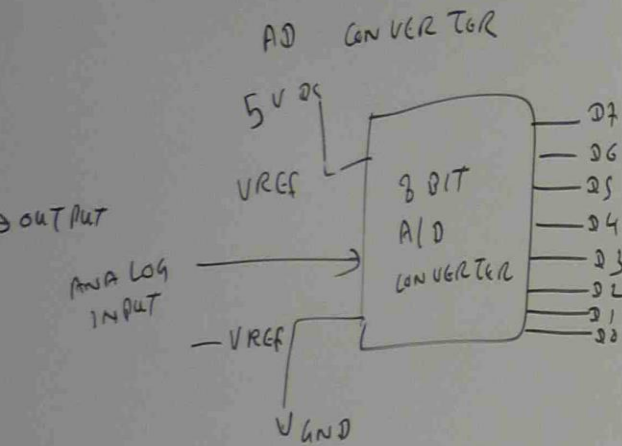 AD CONVERTER
5V DC
VREF
OUTPUT
ANALOG
INPUT
- VREF
VGND
8 BIT
A/D
CONVERTER
D7
D6
D5
D4
D3
D2
D1
D0